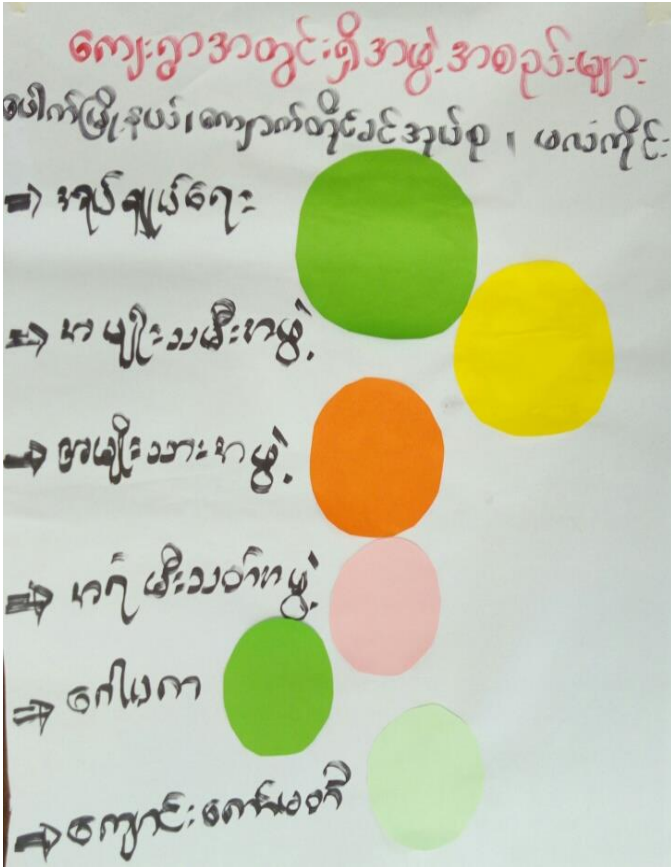 ကျေးရွာအတွင်းရှိအဖွဲ့အစည်းများ
ပေါက်မြို့နယ်၊ကျောက်တိုင်ခင်အုပ်စု ၊ မလံကိုင်း
⇒ အုပ်ချုပ်ရေး
⇒ အမျိုးသမီးအဖွဲ့
⇒ အမျိုးသားအဖွဲ့
⇒ အရံမီးသတ်အဖွဲ့
⇒ ဂေါပက
⇒ ကျောင်းကော်မတီ